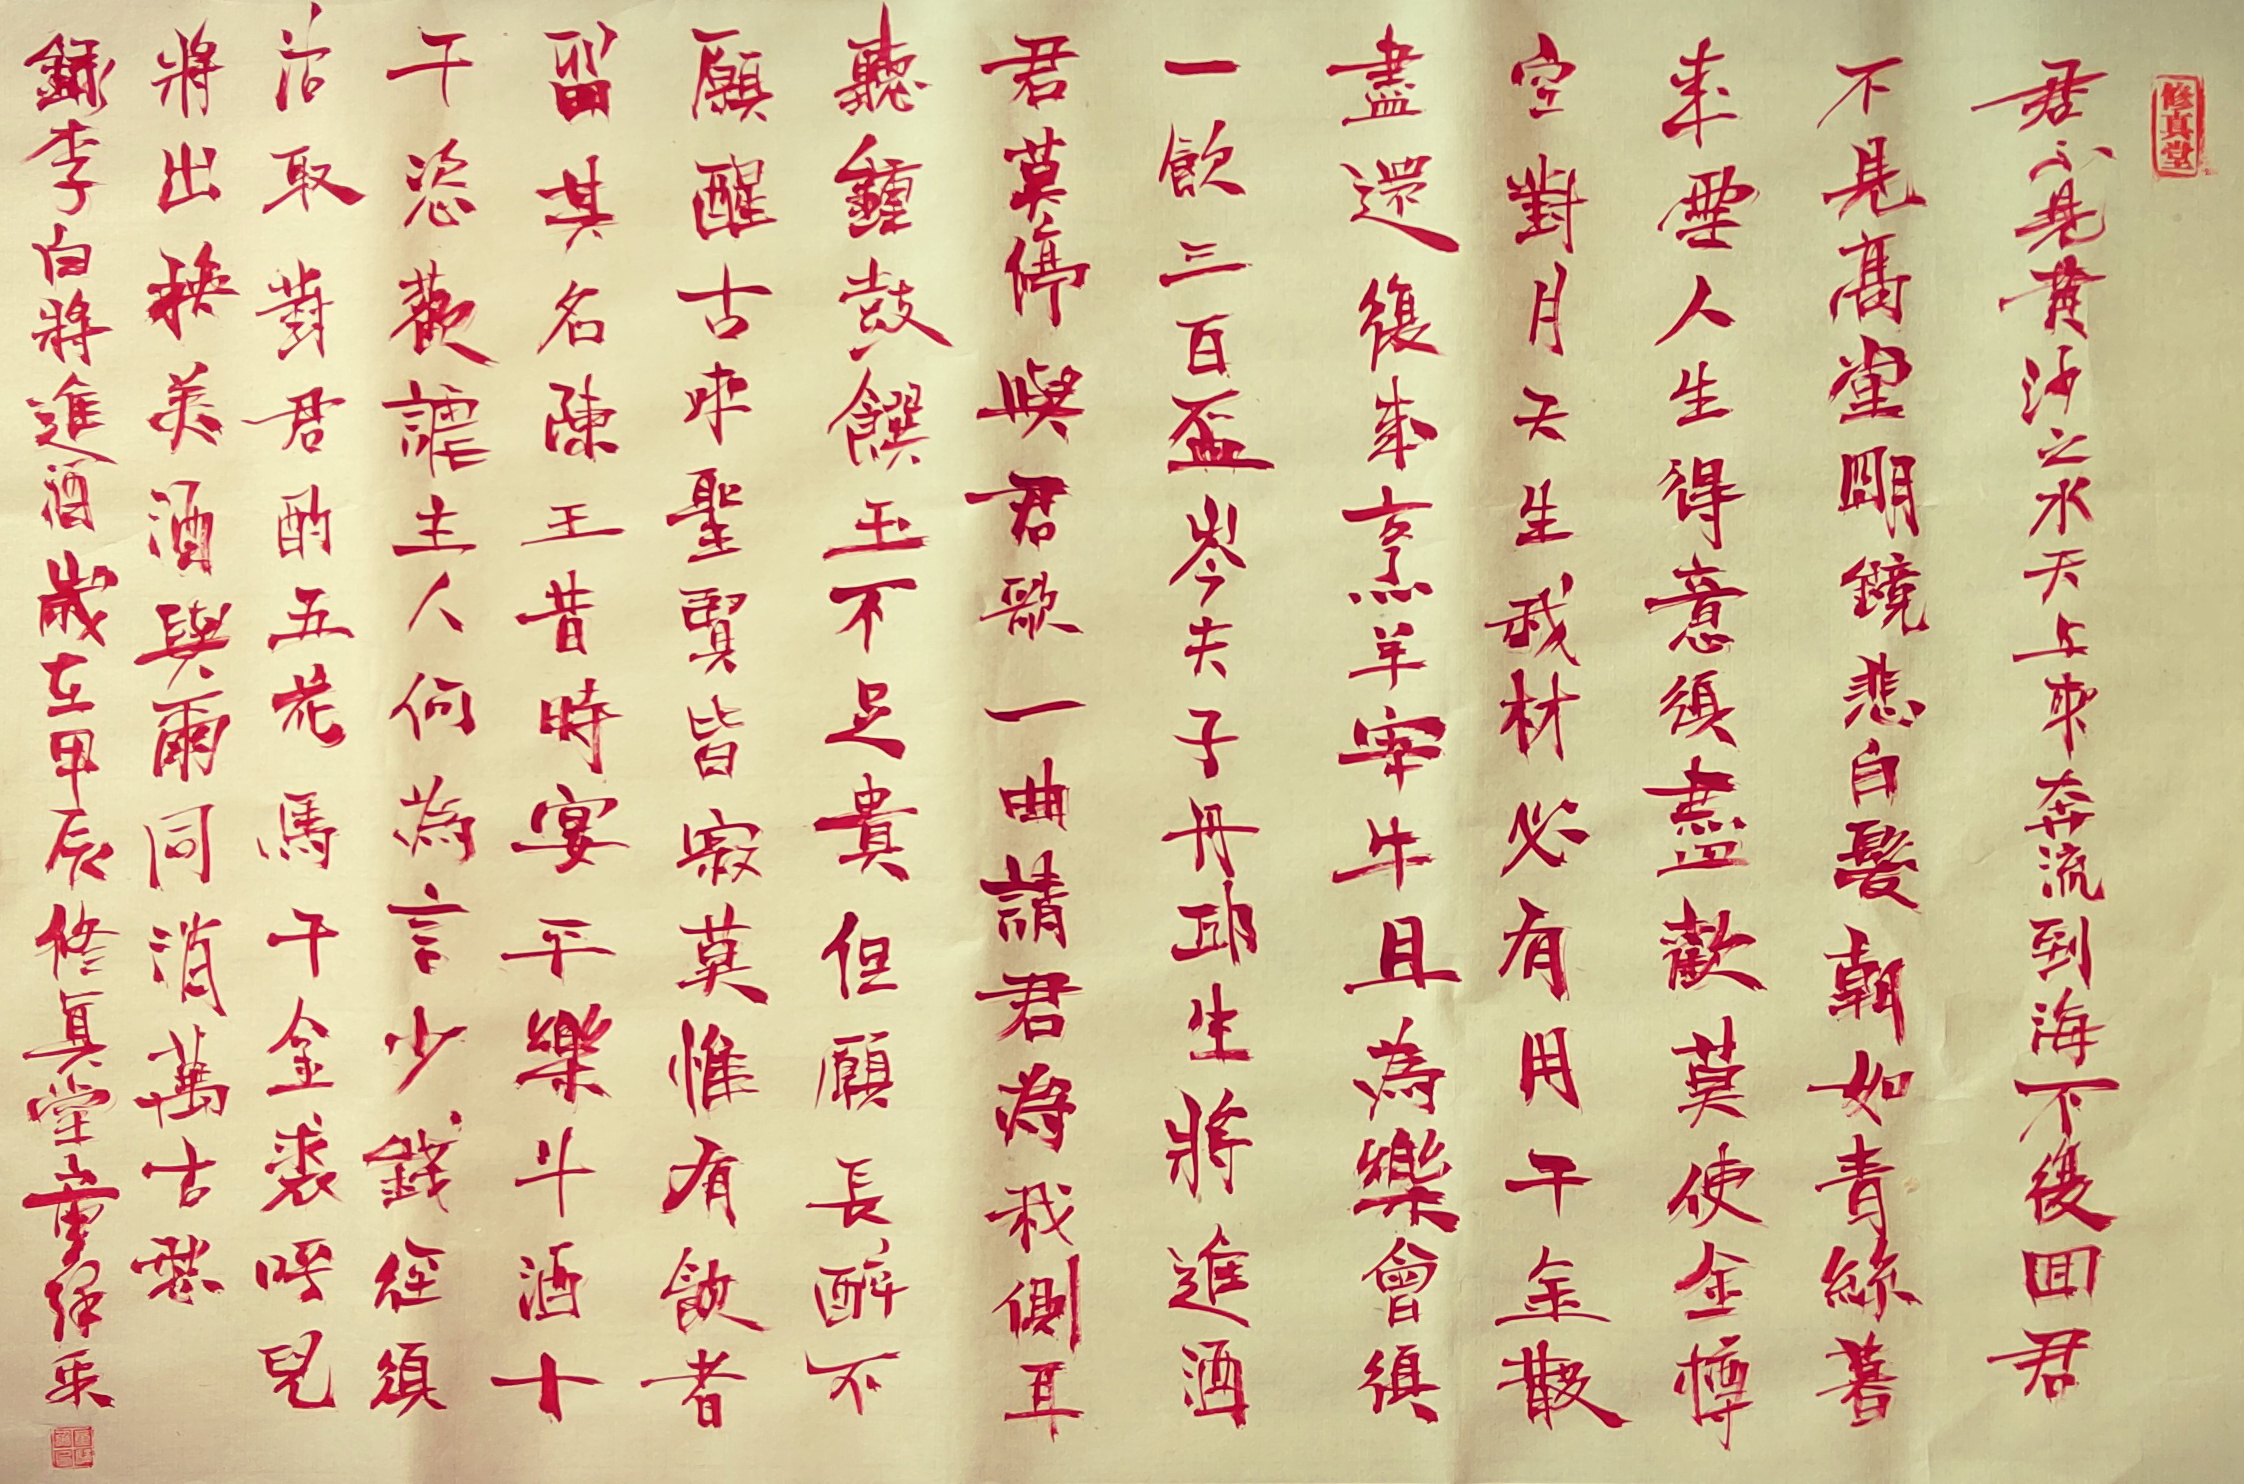 修真堂
君不見黃河之水天上來奔流到海不復回君
不見高堂明鏡悲白髮朝如青絲暮
成雪人生得意須盡歡莫使金樽
空對月天生我材必有用千金散
盡還復來烹羊宰牛且為樂會須
一飲三百盃岑夫子丹邱生將進酒
君莫停與君歌一曲請君為我側耳
聽鍾鼓饌玉不足貴但願長醉不
願醒古來聖賢皆寂莫惟有飲者
留其名陳王昔時宴平樂斗酒十
千恣歡謔主人何為言少錢徑須
沽取對君酌五花馬千金裘呼兒
將出換美酒與爾同消萬古愁
錄李白將進酒歲在甲辰修真堂童